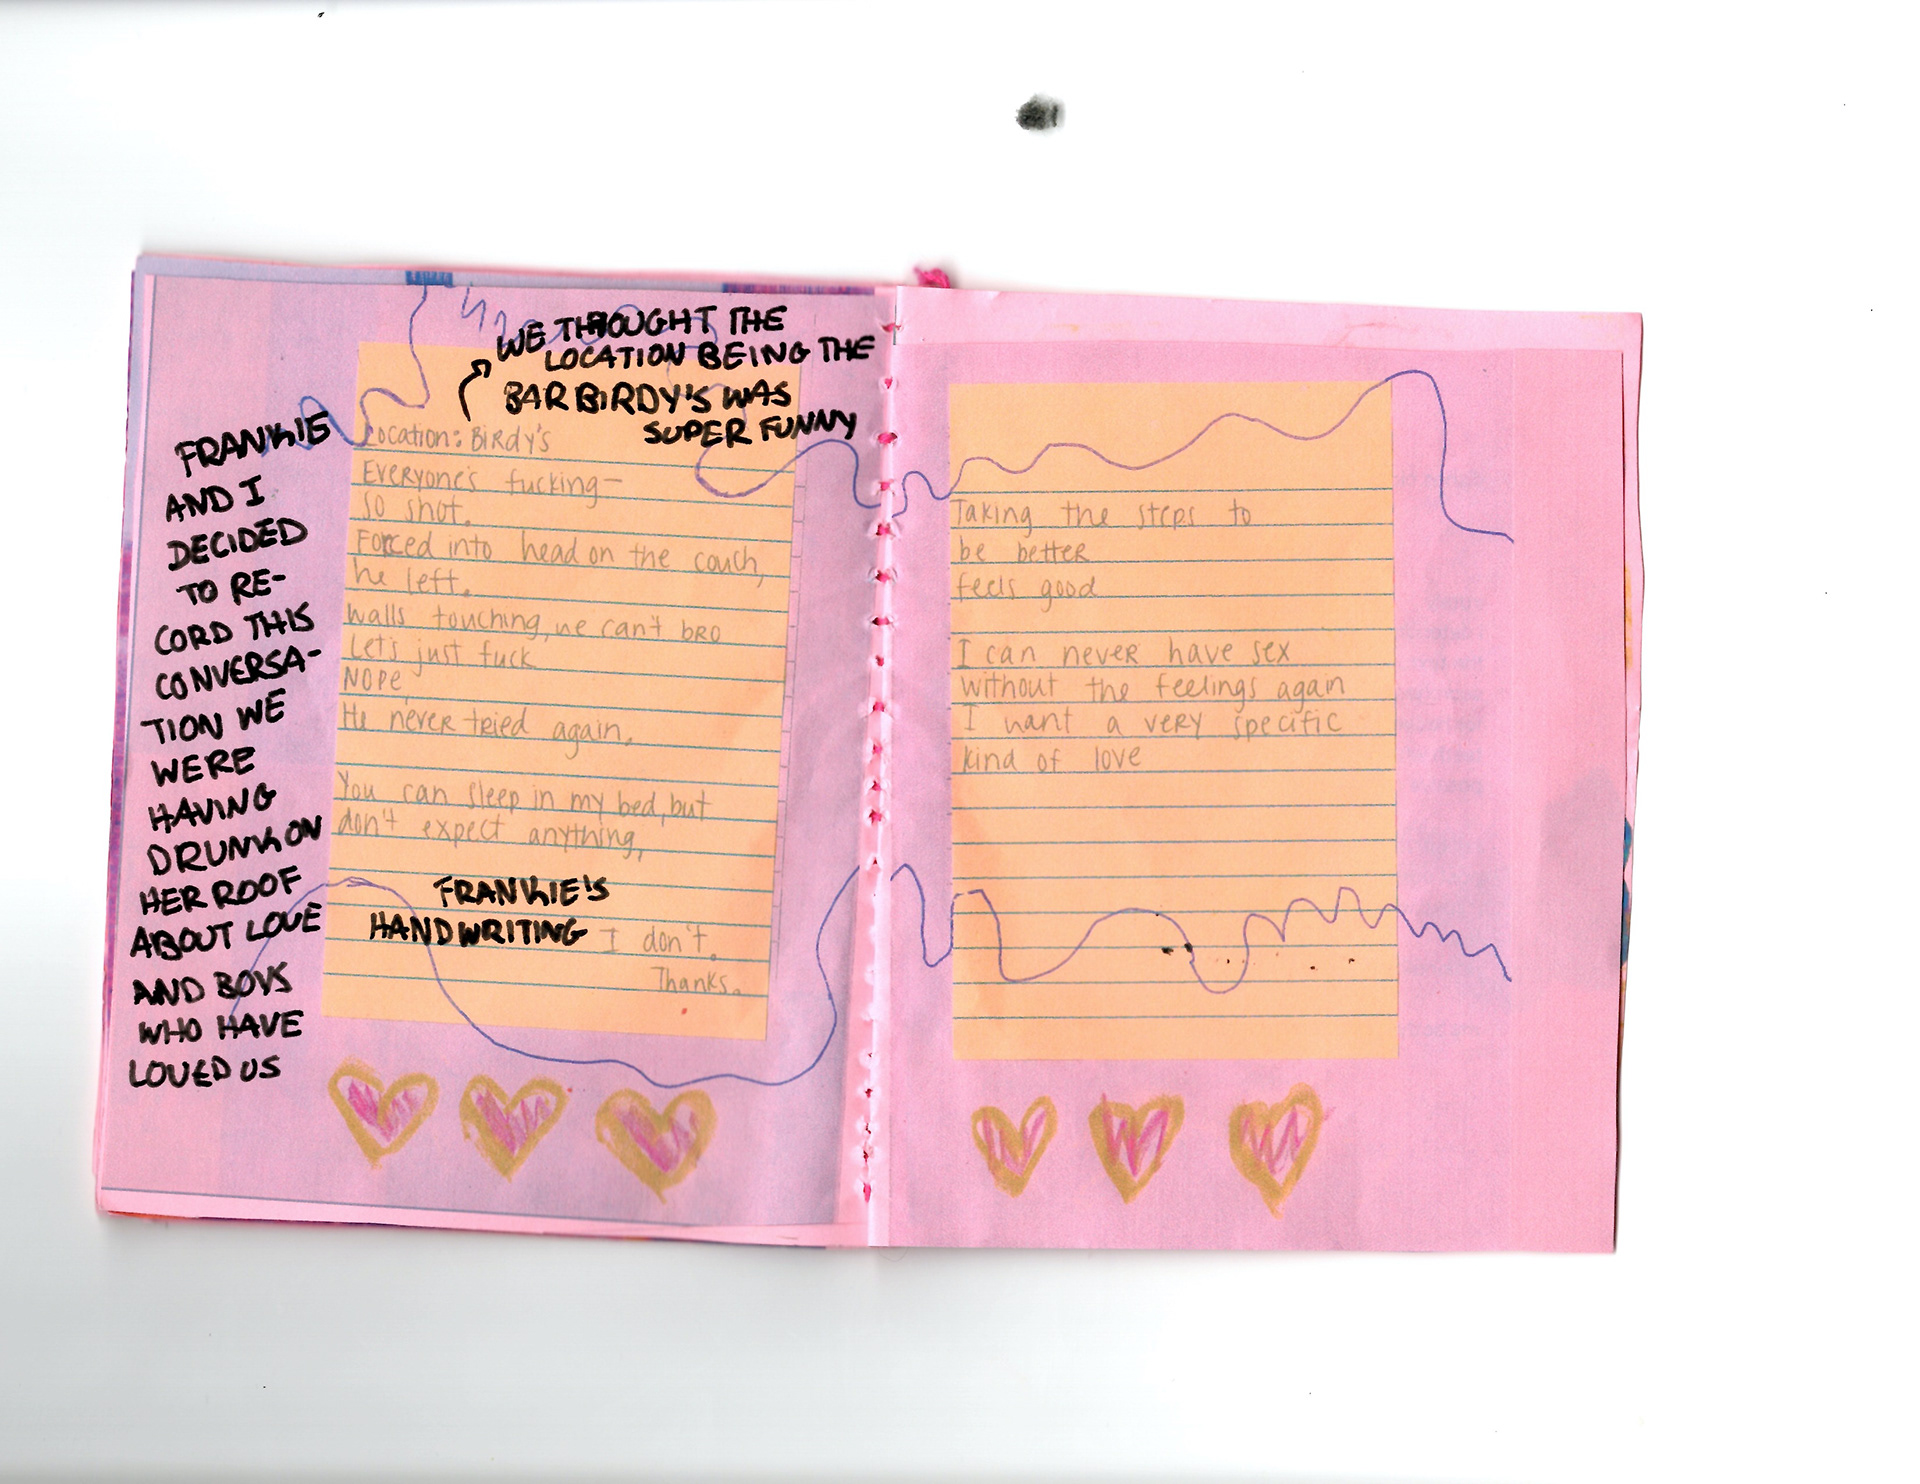 WE THOUGHT THE
LOCATION BEING THE
BAR BIRDY'S WAS
SUPER FUNNY
FRANKIE
AND I
DECIDED
TO RE-
CORD THIS
CONVERSA-
TION WE
WERE
HAVING
DRUNK ON
HER ROOF
ABOUT LOVE
AND BOYS
WHO HAVE
LOVED US
Location: Birdy's
Everyone's fucking-
so shot.
Forced into head on the couch,
he left.
walls touching, we can't bro
Let's just fuck
Nope
He never tried again.
You can sleep in my bed, but
don't expect anything,
FRANKIE'S
HANDWRITING
I don't.
Thanks.
Taking the steps to
be better
feels good
I can never have sex
without the feelings again
I want a very specific
kind of love